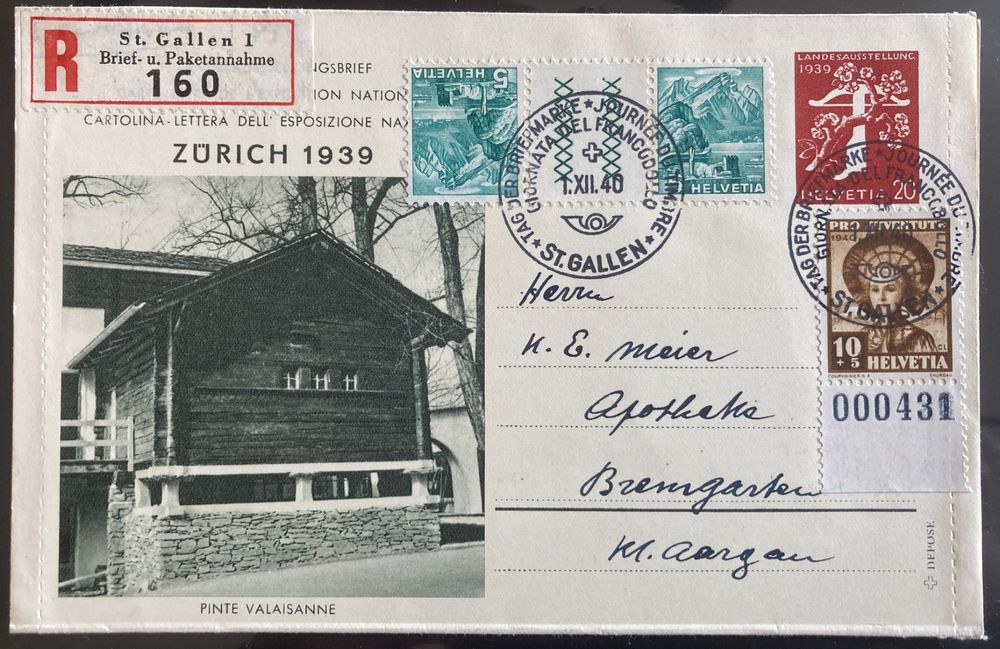 R
St. Gallen 1
Brief- u. Paketannahme
160
NGSBRIEF
ION NATION
CARTOLINA-LETTERA DELL' ESPOSIZIONE NA
ZÜRICH 1939
HELVETIA 5
HELVETIA
TAG DER BRIEFMARKE ★ JOURNÉE DU TIMBRE
GIORNATA DEL FRANCOBOLLO
1.XII.40
★ ST. GALLEN ★
LANDESAUSSTELLUNG
1939
HELVETIA 20
TAG DER BRIEFMARKE ★ JOURNÉE DU TIMBRE
GIORNATA DEL FRANCOBOLLO
★ ST. GALLEN ★
PRO JUVENTUTE
1940
10
+5 HELVETIA
COURVOISIER S.A. THURGAU
000431
Herrn
K. E. Meier
Apotheke
Bremgarten
Kt. Aargau
PINTE VALAISANNE
DEPOSE